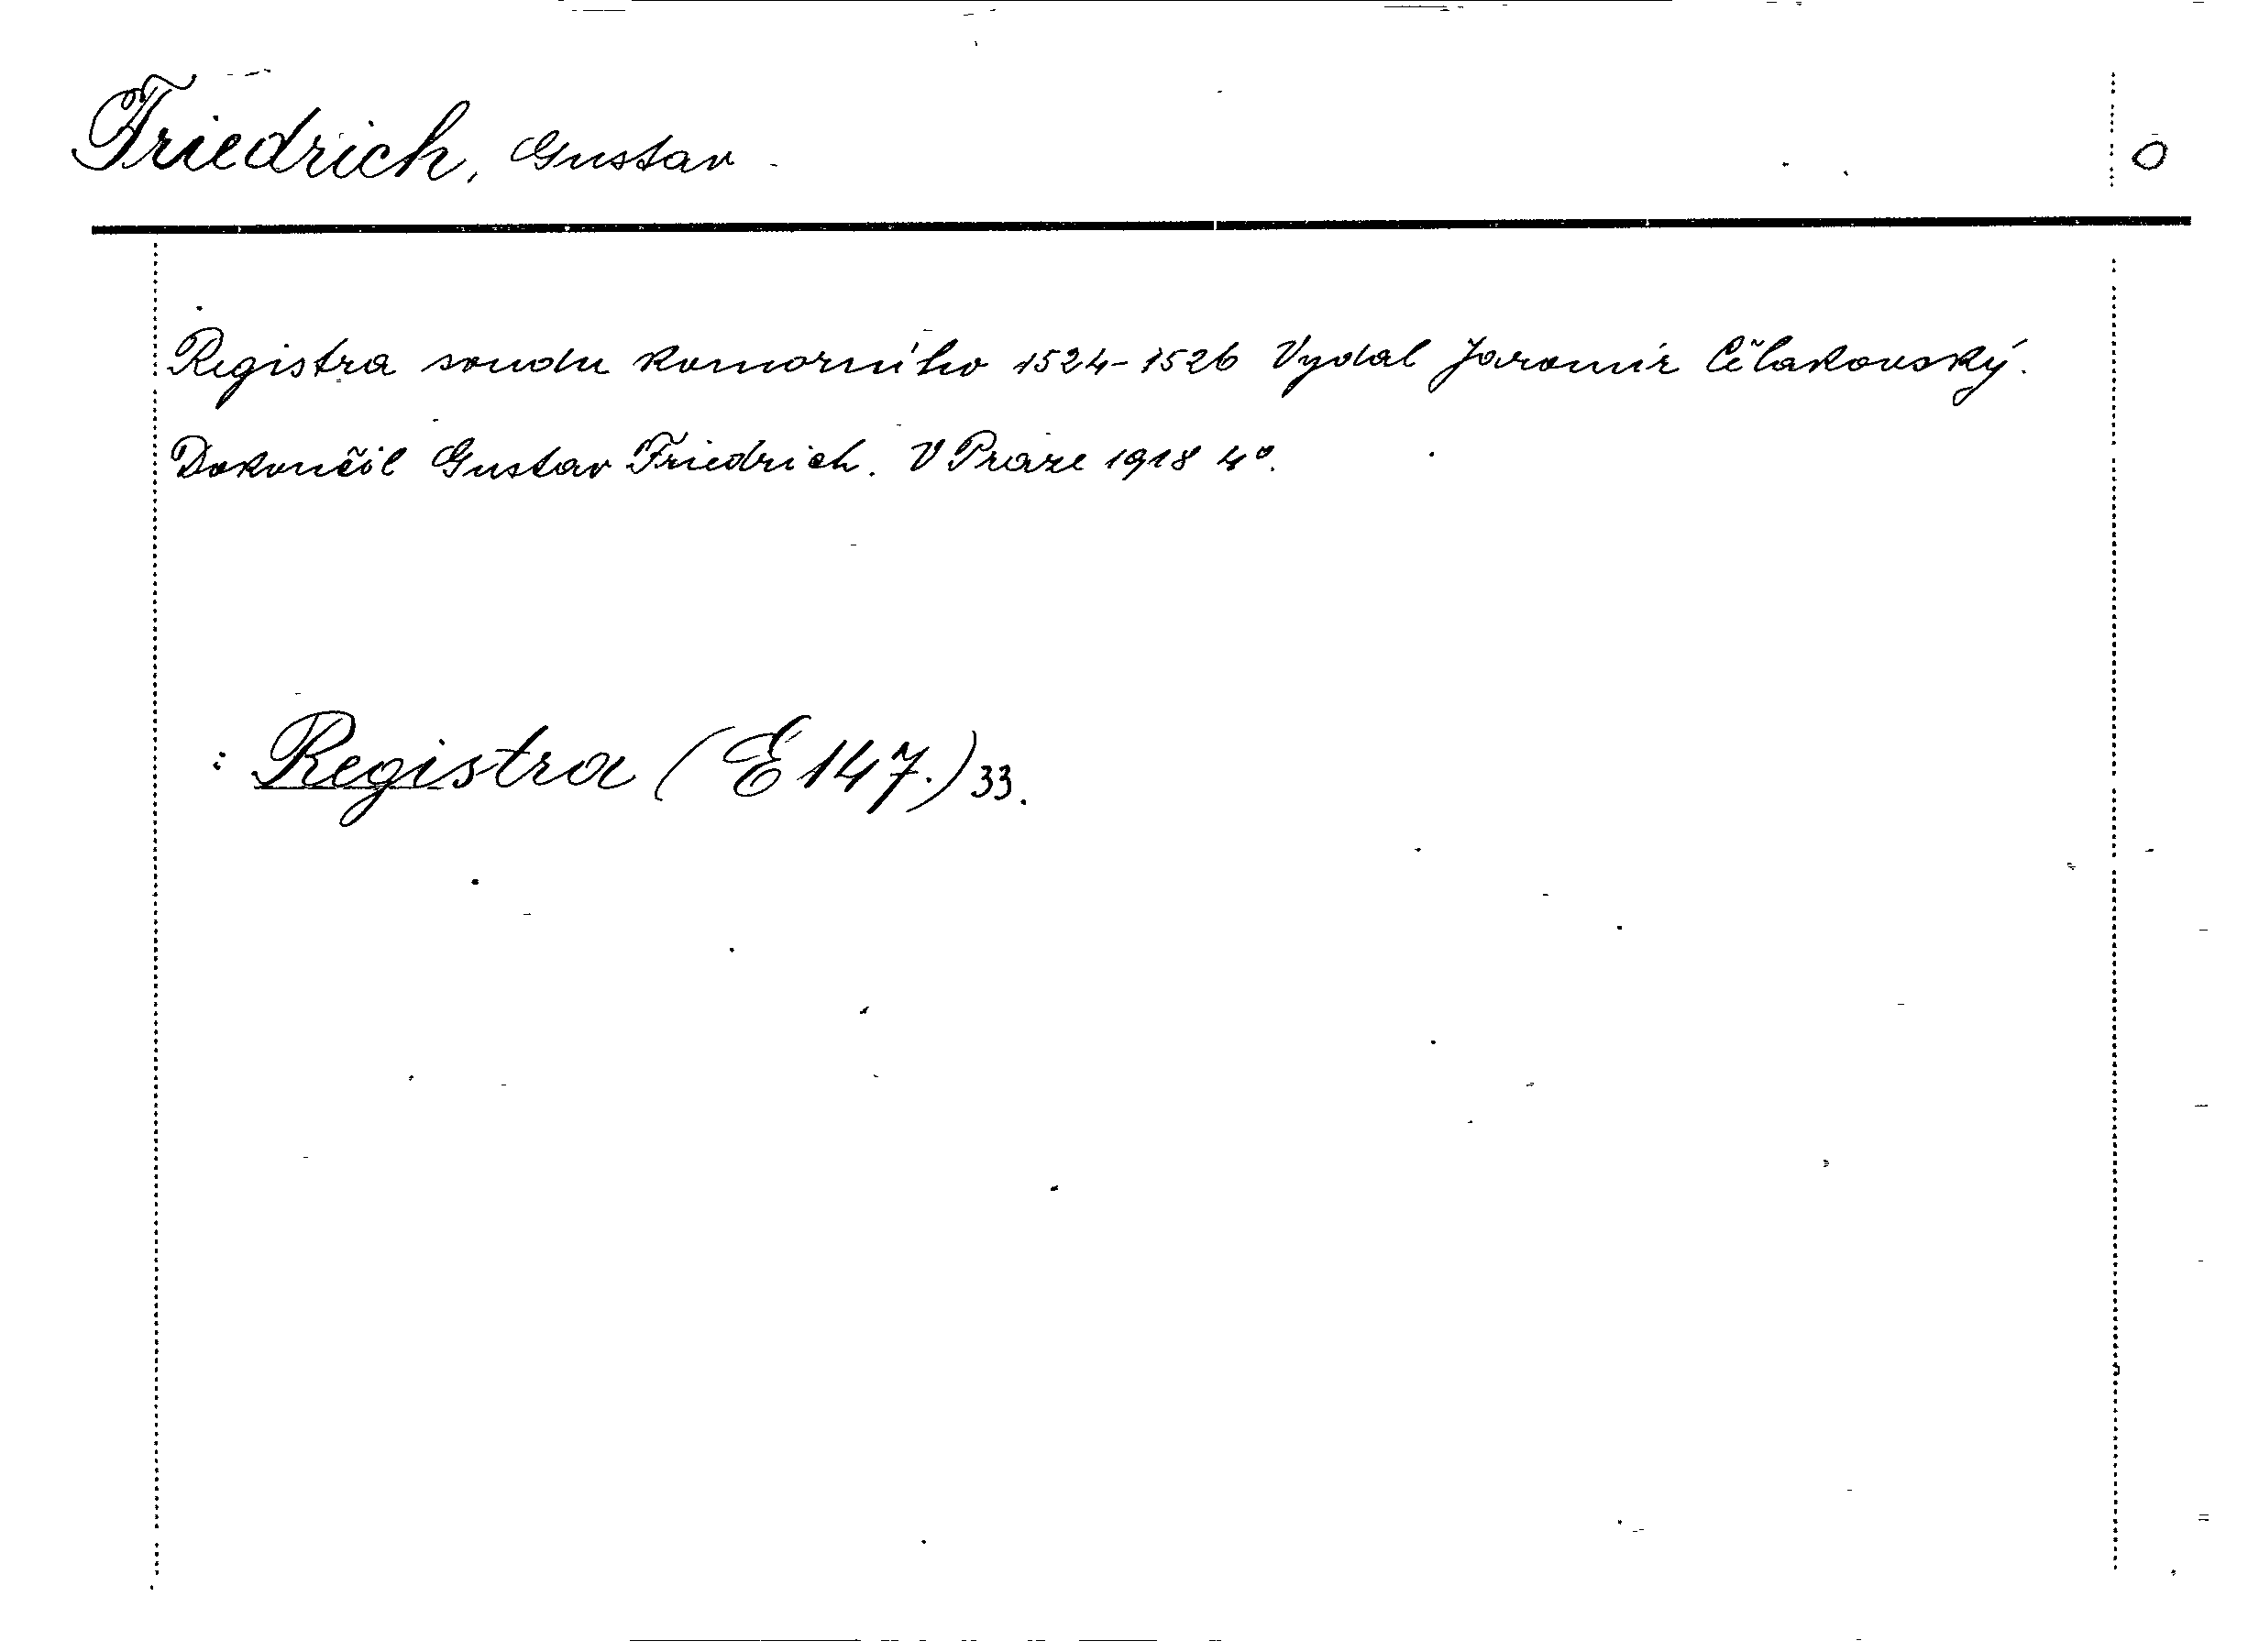 Friedrich, Gustav O
Registra soudu komorního 1524-1526 Vydal Jaromír Čelakovský.
Dokončil Gustav Friedrich. V Praze 1918 4°.
: Registra (E 147.) 33.